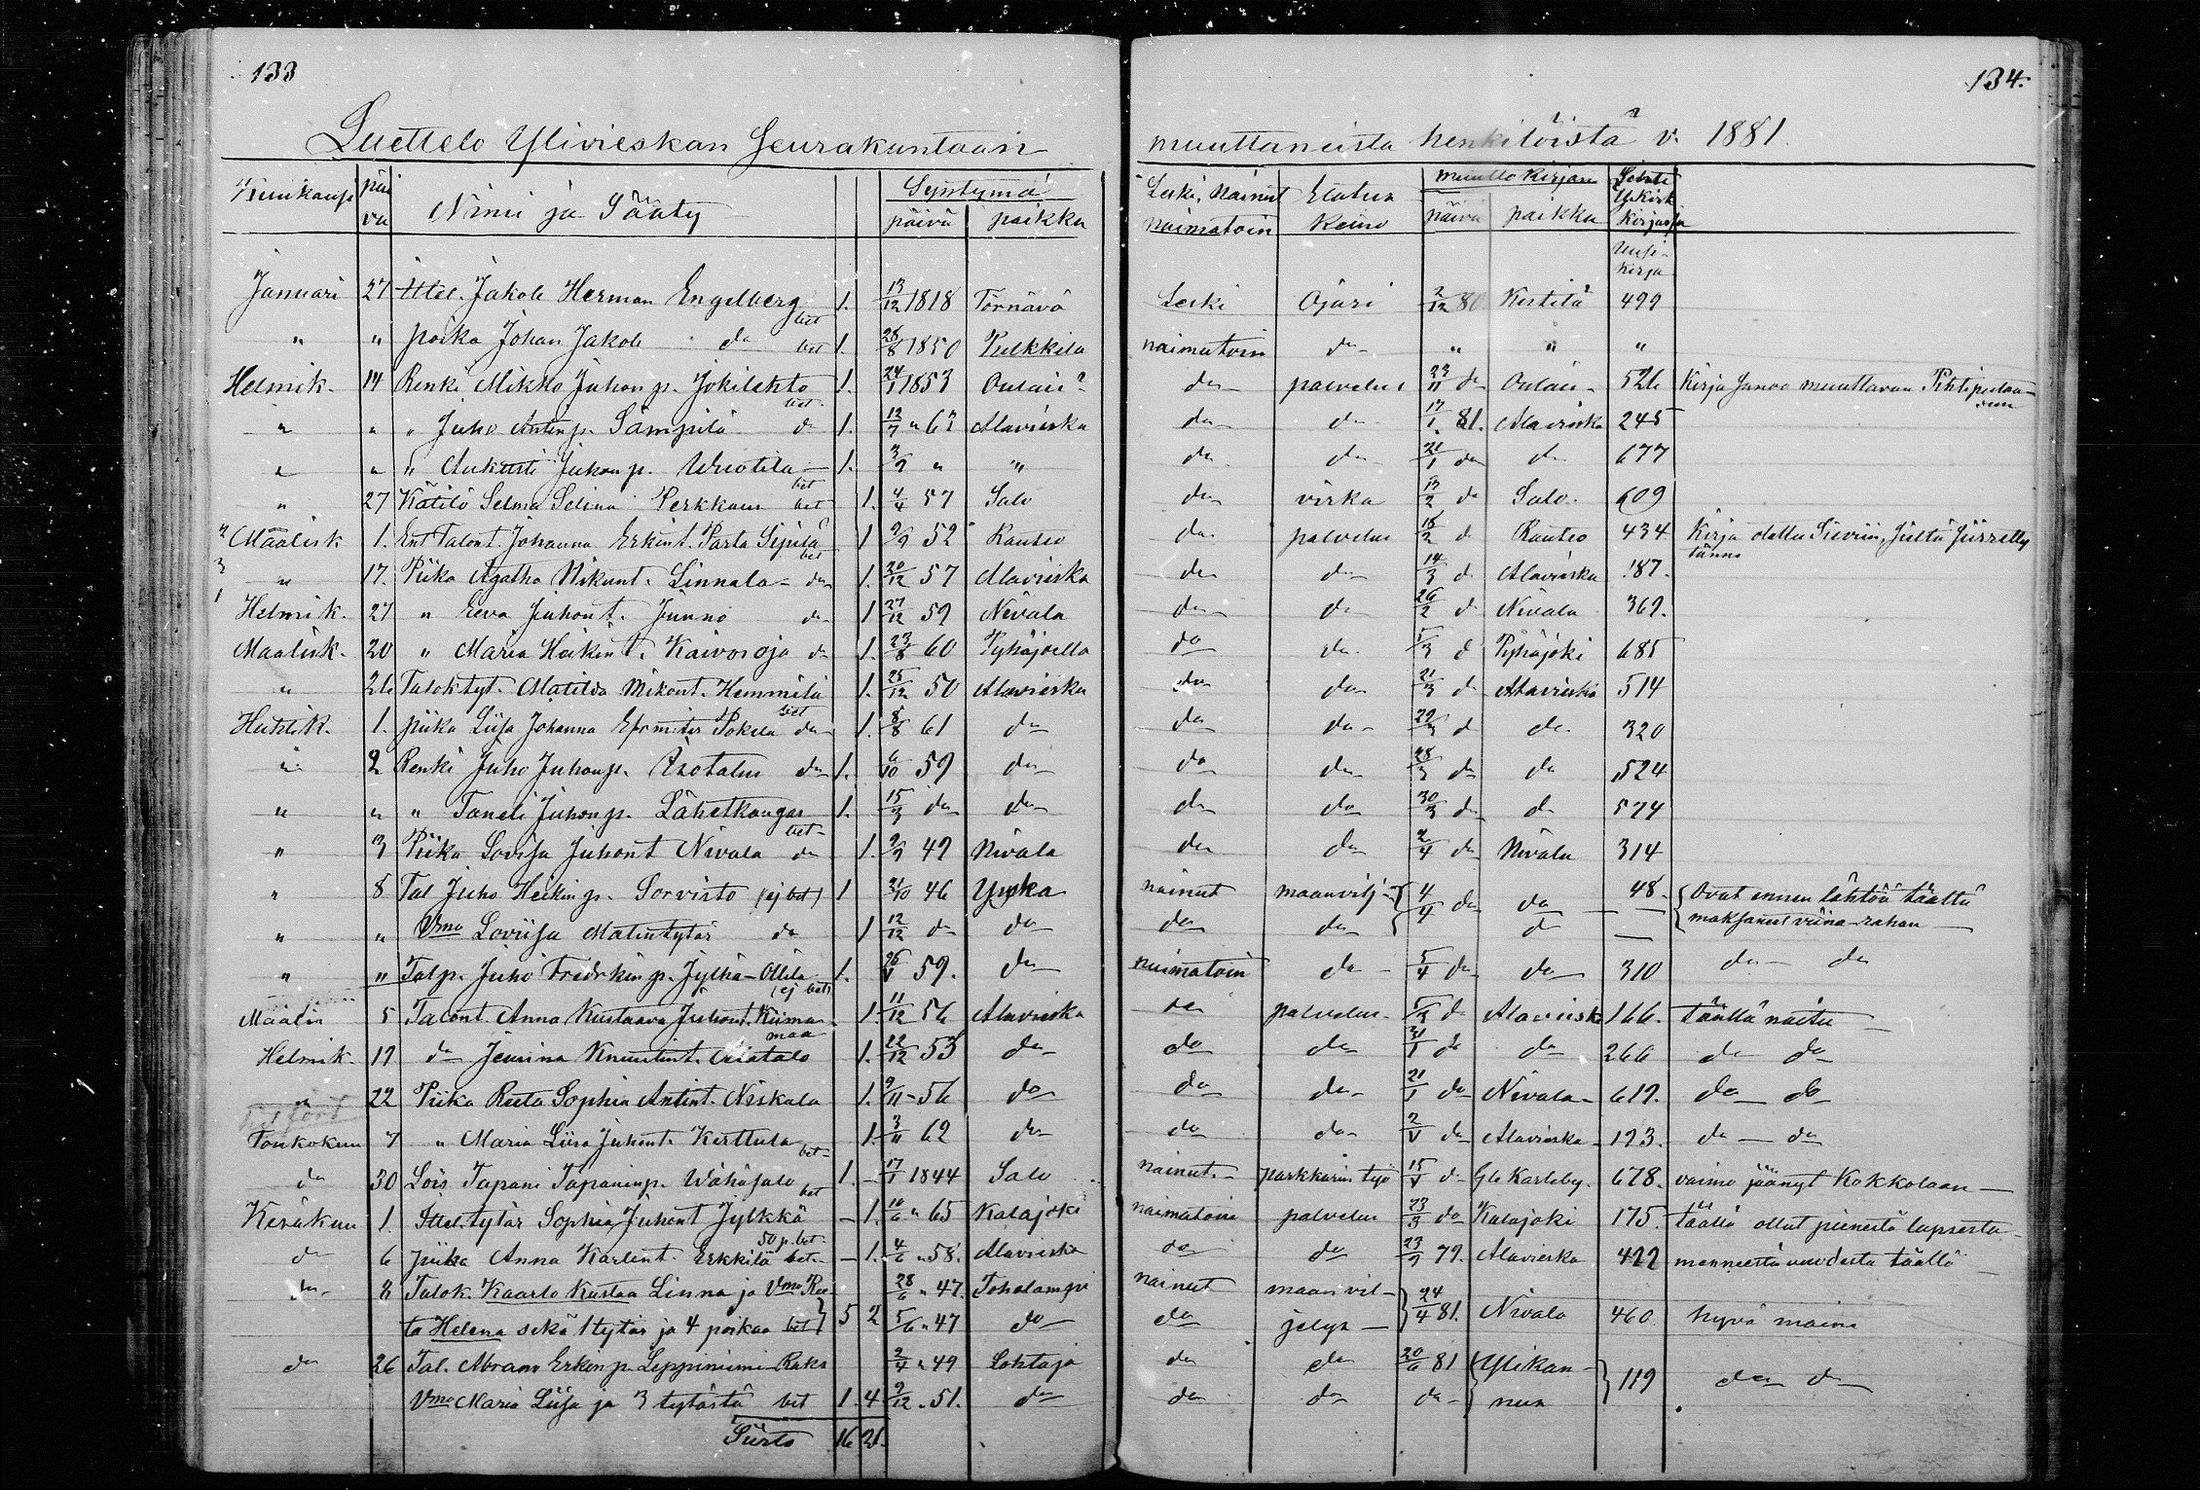 133
134.
Luettelo Ylivieskan Seurakuntaan muuttaneista henkilöistä v. 1881.
Kuukausi päivä Nimi ja Sääty Syntymä päivä paikka Leski, Nainut naimatoin Elatus keino muutto kirjan päivä paikka kirjassa
Uusi-kirja
Januari 27 Ittel. Jakob Herman Engelberg bet 1. 13/12 1818 Törnävä Leski Ajuri 2/12 80 Kestilä 499
" " poika Johan Jakob da bet 1. 28/8 1850 Pulkkila naimatoin da " " "
Helmik. 14 Renki Mikko Juhonp. Jokilehto bet 1. 24/1 1853 Oulais da palvelus 23/11 da Oulais 526 Kirja sanoo muuttavan
" " " Juho Antinp. Sämpilä da 1. 12/7 " 63 Alavieska da da 17/1 81. Alavieska 245
" " " Aukusti Juhonp. bet 1. 3/9 " " da da 21/1 da da 677
" 27 Kätilö Selma Selina Perkkaus bet 1. 4/4 57 Salo da virka 13/2 da Salo 609
2 Maalisk 1. Ent Talont. Johanna Erkint. Parta Sipilä bet 1 9/9 52 Rautio da palvelus 18/2 d Rautio 434 Kirja Sieviin, sieltä siirretty tänne
3 " 17. Piika Agatha Nikunt. Linnala da 1. 20/12 57 Alavieska da da 14/3 d Alavieska 187.
1 Helmik. 27 " Eeva Juhont. Junno da 1 27/12 59 Nivala da da 26/2 d Nivala 369.
Maalisk. 20 " Maria Heikint. Kaivosoja da 1. 23/8 60 Pyhäjoella da da 5/3 d Pyhäjoki 685
" 26 Taloktyt. Matilda Mikont. Hemmilä bet 1. 25/12 50 Alavieska da da 21/3 d Alavieska 514
Huhtik. 1. piika Liisa Johanna Pokela da 1. 8/8 61 da da da 29/3 d da 320
" 2 Renki Juho Juhonp. da 1. 6/10 59 da da da 28/3 da da 524
" " " Taneli Juhonp. Lähetkangas bet 1. 15/3 da da da da 30/3 da d 574
" 3 Piika Lovisa Juhont Nivala da 1. 9/9 49 Nivala da da 2/4 da Nivala 314
" 8 Tal Juho Heikinp. Sorvisto (ej bet) 1 21/10 46 nainut maanvilj. 4/4 da da 48. Ovat ennen lähtöä täältä
" " Vmo Loviisa Matintytär da 1 12/12 da da da da d — maksaneet viina-rahan
" " Talp. Juho Fredrkinp. Jylhä-Ollila (ej bet) 1. 26/V 59. da naimatoin da 5/4 da da 310 da da
Maalis 5 Talont. Anna Kustaava Juhont. Kiimamaa 1. 11/12 56 Alavieska da palvelus 5/3 da Alavieska 166. täällä naitu
Helmik. 17 da Jemina Knuutint. Alatalo 1. 22/12 53 da da da 31/1 da da 260 da da
" 22 Piika Reeta Sophia Antint. Niskala 1. 9/11 56 da da da 21/1 da Nivala 619. da da
Toukokuu 7 " Maria Liisa Juhont. Kerttula bet 1. 3/11 62 da da da 2/V da Alavieska 193. da da
da 30 Lois Tapani Tapaninp. Wähäsalo bet 1. 17/1 1844 Salo nainut parkkarin työ 15/V d Gla Karleby. 678. vaimo jäänyt Kokkolaan
Kesäkuu 1. Ittel.tytär Sophia Juhont Jylkkä 50 p. bet 1. 10/6 " 65 Kalajoki naimatoin palvelus 23/3 da Kalajoki 175. täällä ollut pienestä lapsesta
da 6 piika Anna Karlint. Erkkilä bet 1. 4/6 " 58. Alavieska da da 23/9 79. Alavieska 422 menneestä vuodesta täällä
da 8 Talok. Kaarlo Kustaa Linna ja Vmo Ree- 28/6 " 47. Toholampi nainut maanvil-
ta Helena sekä 1 tytär ja 4 poikaa bet 5 2 5/6 " 47 do da jelys 24/4 81. Nivala 460. hyvä maine
da 26 Tal. Abram Erkinp. Leppiniemi-Raka 2/4 " 49 Lohtaja da da 20/6 81 Ylikan-
Vmo Maria Liisa ja 3 tytärtä bet 1. 4 9/12 " 51. da da da da nus 119 da da
Siirto 16 21.